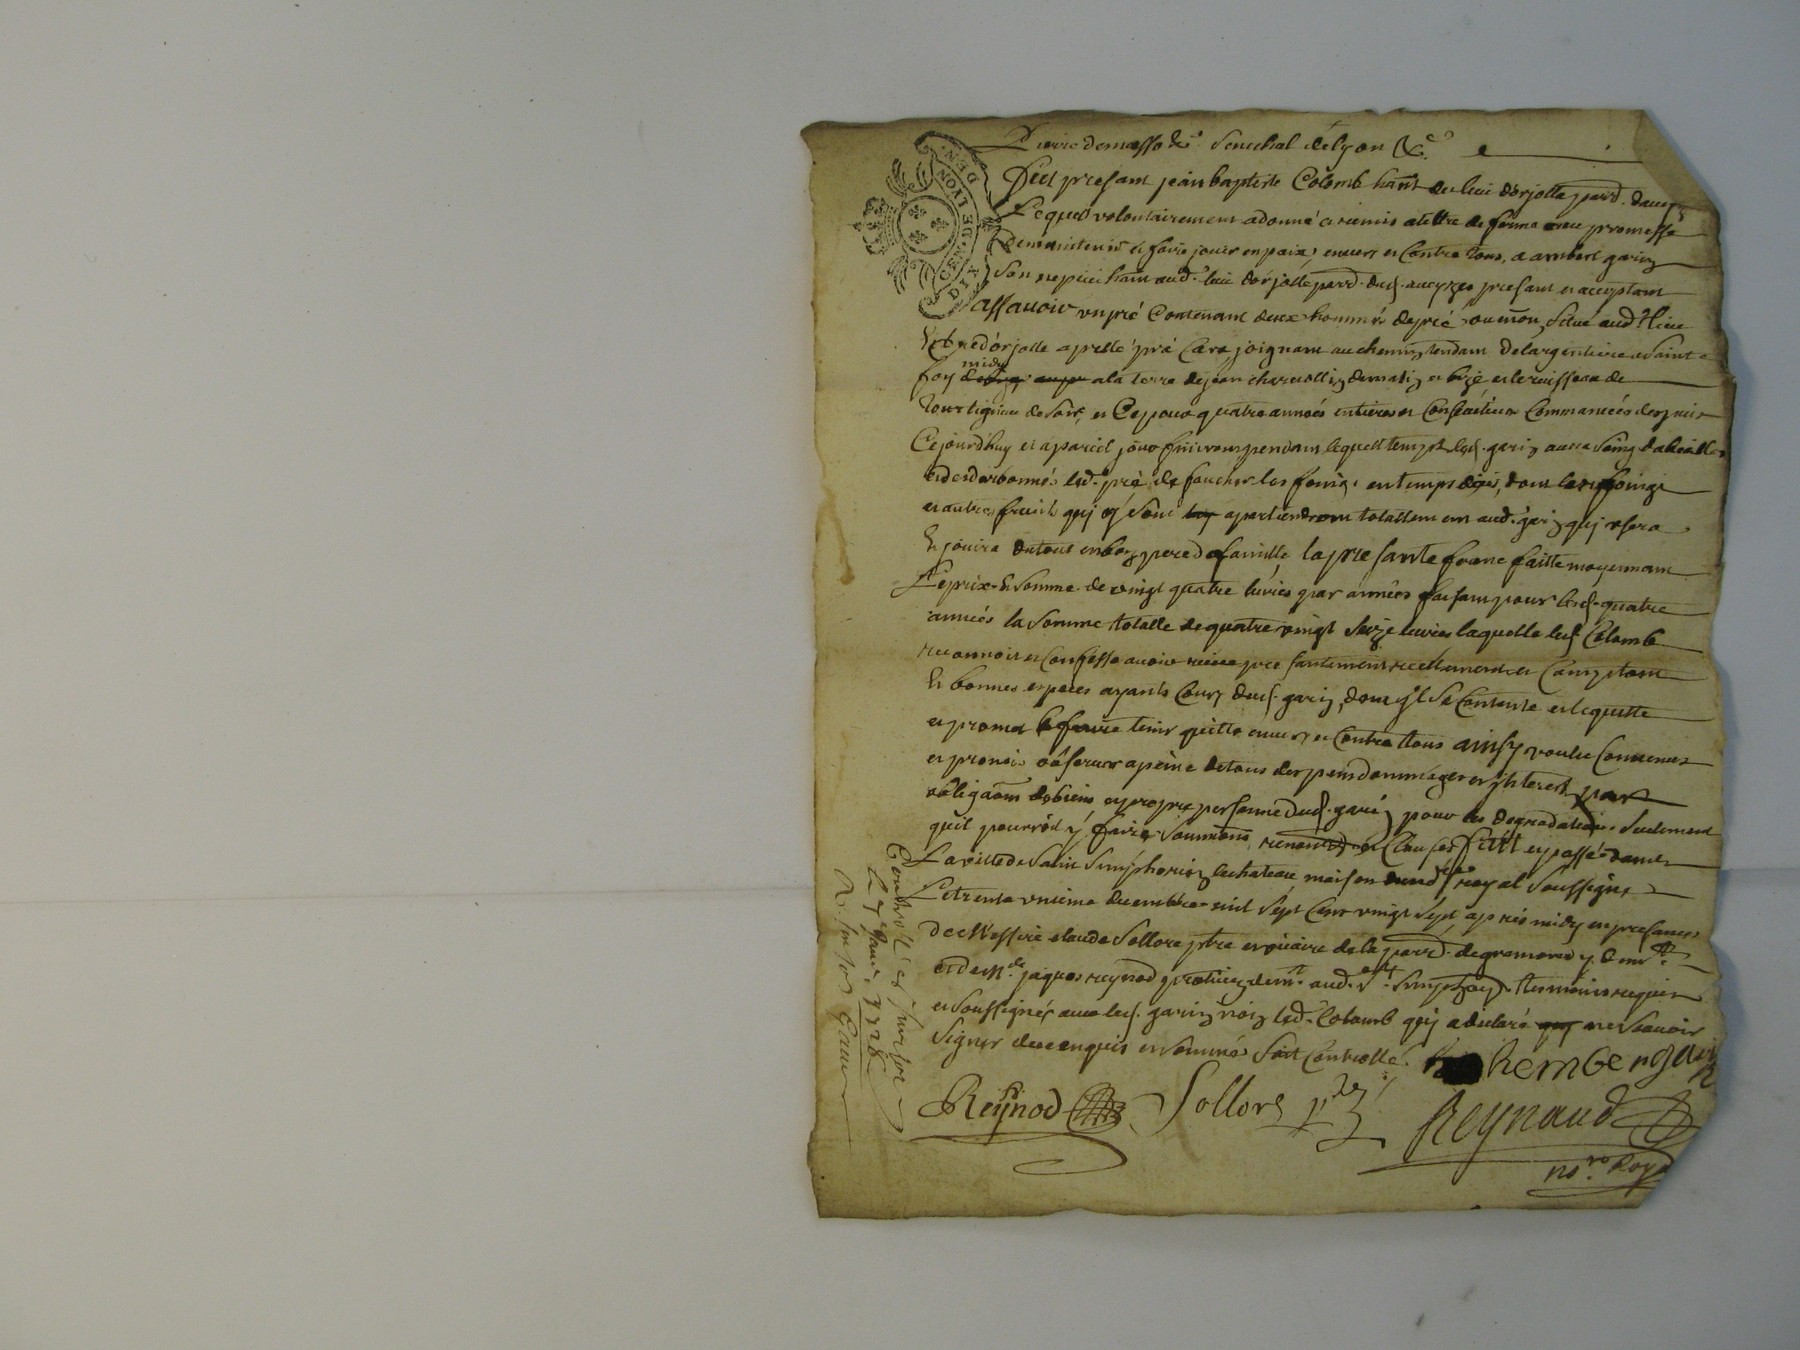 Pierre de masso &c. Senechal de lyon &c.
Fut presant jean baptiste Colomb hant du lieu dorjolle parr. d'aveyz
Lequel volontairement a donné et remis a tiltre de ferme avec promesse
De maintenir et faire jouir en paix, envers et Contre tous, a ambert garin
Son nepveu hant aud. lieu dorjolle parr. dud. aveyzes presant et acceptant
assavoir un pré Contenant deux hommés de pré ou environ, Situé aud. lieu
dorjolle apellé pra joignant au chemin tendant de largentiere a Saint
midy
foy a la terre de jean de matin et bize, et le ruisseau de
de Soir, et Ce pour quatre années entieres et Consécutives Commancées depuis
Cejourdhuy et a pareil jour finiront pendant lequel temps led. garin aura Soing
led. pré, de faucher les foings en temps dont les foings
et autres fruits quj y Sont apartiendront totallement aud. garin quj usera
Et jouira du tout en bon pere de famille, la presante ferme faitte moyennant
Le prix et Somme de vingt quatre livres par années faisant pour lesd. quatre
années la Somme totalle de quatre vingt Seize livres laquelle led. Colomb
reconnoit et Confesse avoir reçeue presantement reellement et Comptant
En bonnes especes ayants Cours dud. garin, dont jl Se Contente et le quitte
et promet le faire tenir quitte envers et Contre tous ainsy voulu Convenu
et promis observer a peine de tous despens dommages et jnterests par
obligaõn de biens et propre personne dud. garin pour les degradations Seulement
quil pourroit y faire Soumõns renonõns et Clauses fait et passé dans
La ville de Saint Simphorien le chateau maison du nore royal Soussigné
Le trente unieme decembre mil Sept Cent vingt Sept, apres midy en presance
de messire claude Sollore ptre et vicaire de la parr. de gramond y demt.
et de Mre. jaques reynod praticien demt. aud. St. Simphon. tesmoins requis
et Soussignés avec led. garin non led. Colomb quj a declaré ne Scavoir
Signer de ce enquis et Sommé Soit Controllé.
hember garin
Reynod Sollore ptre Reynaud
nore Roya
Controlé a St Simphor
Le 2 janv. 1728